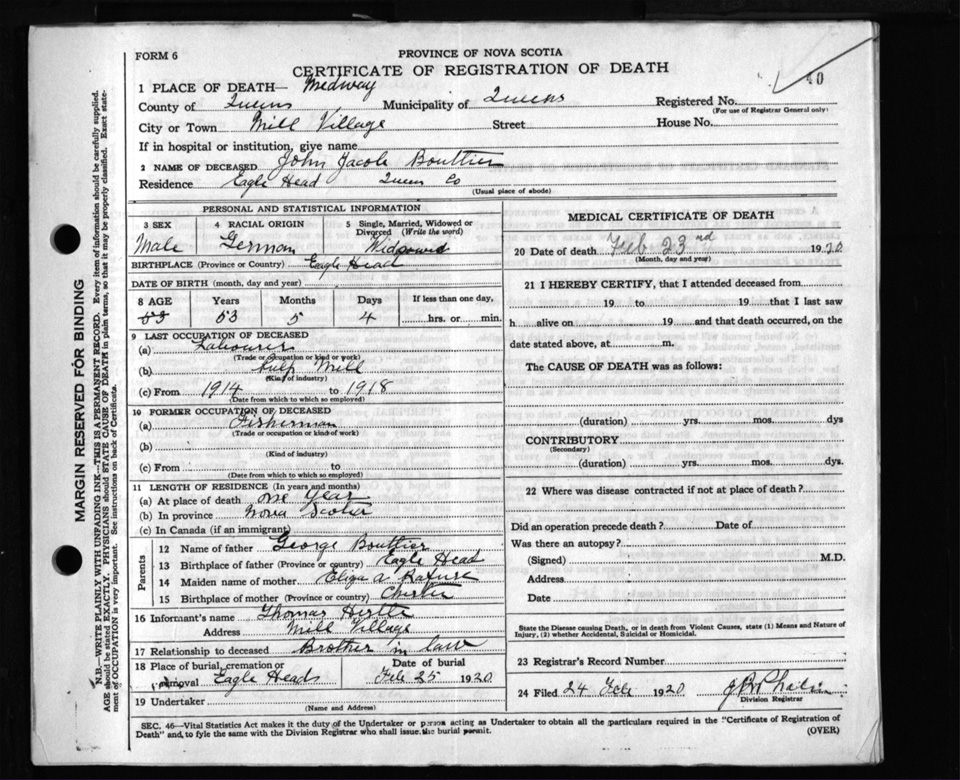 FORM 6
PROVINCE OF NOVA SCOTIA
CERTIFICATE OF REGISTRATION OF DEATH
1 PLACE OF DEATH— Medway 40
County of Queens Municipality of Queens Registered No.
(For use of Registrar General only)
City or Town Mill Village Street House No.
If in hospital or institution, give name
2 NAME OF DECEASED John Jacob Bouttier
Residence Eagle Head Queens Co
(Usual place of abode)
PERSONAL AND STATISTICAL INFORMATION
3 SEX 4 RACIAL ORIGIN 5 Single, Married, Widowed or Divorced (Write the word)
Male German Widowed
BIRTHPLACE (Province or Country) Eagle Head
DATE OF BIRTH (month, day and year)
8 AGE Years Months Days If less than one day,
53 53 5 4 hrs. or min.
9 LAST OCCUPATION OF DECEASED
(a) Labourer
(Trade or occupation or kind of work)
(b) Pulp Mill
(Kind of industry)
(c) From 1914 to 1918
(Date from which to which so employed)
10 FORMER OCCUPATION OF DECEASED
(a) Fisherman
(Trade or occupation or kind of work)
(b)
(Kind of industry)
(c) From to
(Date from which to which so employed)
11 LENGTH OF RESIDENCE (In years and months)
(a) At place of death one Year
(b) In province Nova Scotia
(c) In Canada (if an immigrant)
Parents
12 Name of father George Bouttier
13 Birthplace of father (Province or country) Eagle Head
14 Maiden name of mother Eliza
15 Birthplace of mother (Province or country) Chester
16 Informant's name Thomas Hirtle
Address Mill Village
17 Relationship to deceased Brother in law
18 Place of burial, cremation or removal Eagle Heads
Date of burial
Feb 25 1920
19 Undertaker
(Name and Address)
MEDICAL CERTIFICATE OF DEATH
20 Date of death Feb 23rd 1920
(Month, day and year)
21 I HEREBY CERTIFY, that I attended deceased from
19 to 19 that I last saw
h alive on 19 and that death occurred, on the
date stated above, at m.
The CAUSE OF DEATH was as follows:
(duration) yrs. mos. dys
CONTRIBUTORY
(Secondary)
(duration) yrs. mos. dys.
22 Where was disease contracted if not at place of death?
Did an operation precede death? Date of
Was there an autopsy?
(Signed) M.D.
Address
Date
State the Disease causing Death, or in death from Violent Causes, state (1) Means and Nature of
Injury, (2) whether Accidental, Suicidal or Homicidal.
23 Registrar's Record Number
24 Filed 24 Feb 1920
Division Registrar
SEC. 46—Vital Statistics Act makes it the duty of the Undertaker or person acting as Undertaker to obtain all the particulars required in the "Certificate of Registration of
Death" and to fyle the same with the Division Registrar who shall issue the burial permit.
(OVER)
MARGIN RESERVED FOR BINDING
N.B.—WRITE PLAINLY WITH UNFADING INK—THIS IS A PERMANENT RECORD. Every item of information should be carefully supplied.
AGE should be stated EXACTLY. PHYSICIANS should STATE CAUSE OF DEATH in plain terms, so that it may be properly classified. Exact statement of OCCUPATION is very important. See instructions on back of Certificate.